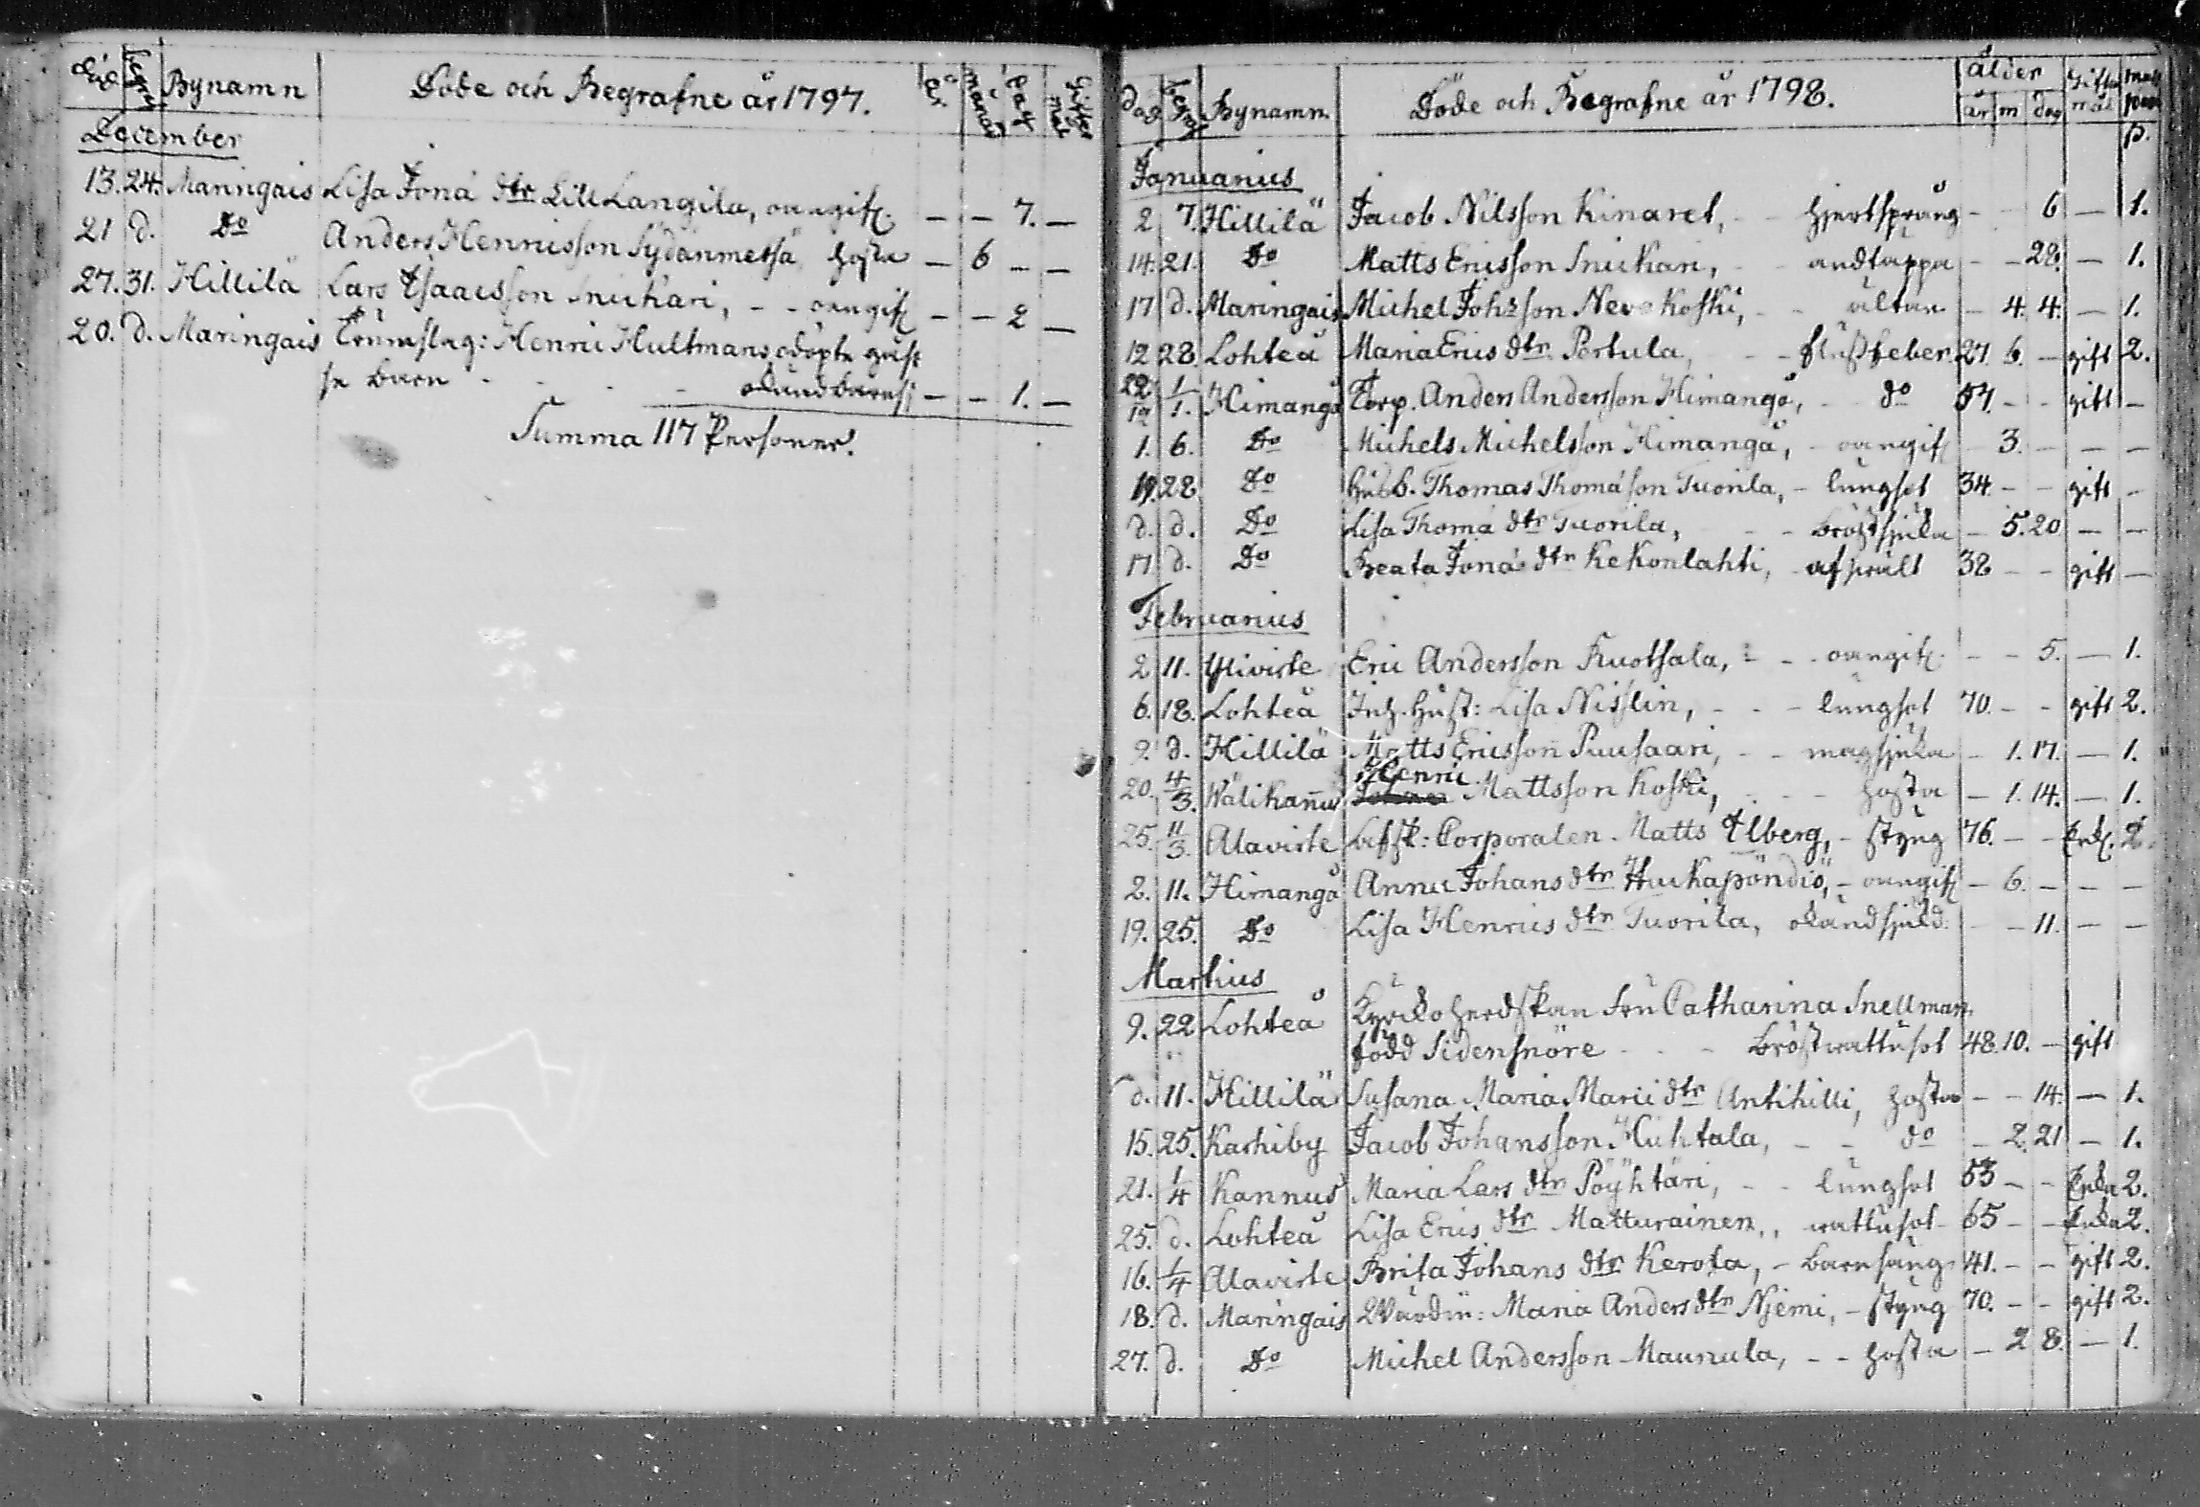 död begraf Bynamn Döde och Begrafne år 1797. år månad dag Gifter mål
December
13. 24. Maringais Lisa Jona dtr Lill Langila, oangif. — — 7. —
21 d. Do Anders Henricsson Sydänmetsä hosta — 6 — —
27. 31. Hillilä Lars Isaacsson Snickari, - - oangif — — 2 —
20. d. Maringais Trumslag: Henric Hultmans odöpte
se barn - - - — — 1. —
Summa 117 Personer.
död begraf Bynamn Döde och Begrafne år 1798. ålder Gifte mål
år m dag
p.
Januarius
2 7. Hillilä Jacob Nilsson Kinaret, - - hjertsprång - - 6 — 1.
14. 21. Do Matts Ericsson Snickari, - - andtäppa - - 28. — 1.
17 d. Maringais Michel Johsson Nevo koski, - - ältan - 4. 4. — 1.
12 28. Lohteå Maria Erics dtr Pertula, - - flussfeber 27. 6. — gift 2.
22/12 1/1. Himango Torp. Anders Andersson Himango, - do 57. - - gift —
1. 6. Do Michels Michelsson Himango, - oangif - 3. - — —
19. 28 Do Husb. Thomas Thomasson Tuorila, - lungsot 34. - - gift -
d. d. Do Lisa Thoma dtr Tuorila, - - Bröstsjuka - 5. 20 — —
17 d. Do Beata Jonas dtr Kekonlahti, - 38 - - gift —
Februarius
2 11. Yliviste Eric Andersson Ruotsala, - - oangif. - - 5. — 1.
6. 18. Lohteå Inh. hust: Lisa Nislin, - - - lungsot 70. - - gift 2.
9. d. Hillilä Matts Ericsson Puusaari, - - magsjuka - 1. 17. — 1.
Henric
20. 4/3. Wälikannus Mattsson Koski, - - - hosta - 1. 14. — 1.
25. 11/3. Alaviste Afsk: Corporalen Matts Elberg, - styng 76. - - Enk. 2.
2. 11. Himango Anna Johans dtr Haukapöndiö, - oangif - 6. - — —
19. 25. Do Lisa Henrics dtr Tuorila, okändsjukd. - - 11. — —
Martius
9. 22 Lohteå Kyrkoherdskan Fru Catharina Snellman,
född Sidensnöre - - - Bröstwattusot 48. 10. — gift
d. 11. Hillilä Susana Maria Marii dtr Antihilli, hosta - - 14. — 1.
15. 25. Karhiby Jacob Johansson Huhtala, - - do - 2. 21 — 1.
21. 1/4 Kannus Maria Lars dtr Pöyhtäri, - - lungsot 53 - - Enka 2.
25. d. Lohteå Lisa Erics dtr Matturainen, wattusot - 65 - - Enka 2.
16. 1/4 Alaviste Brita Johans dtr Kerola, - Barnsäng 41. - - gift 2.
18. d. Maringais Wärdin: Maria Anders dtr Njemi, - styng 70. - - gift 2.
27. d. Do Michel Andersson Maunula, - - hosta - 2 8. — 1.